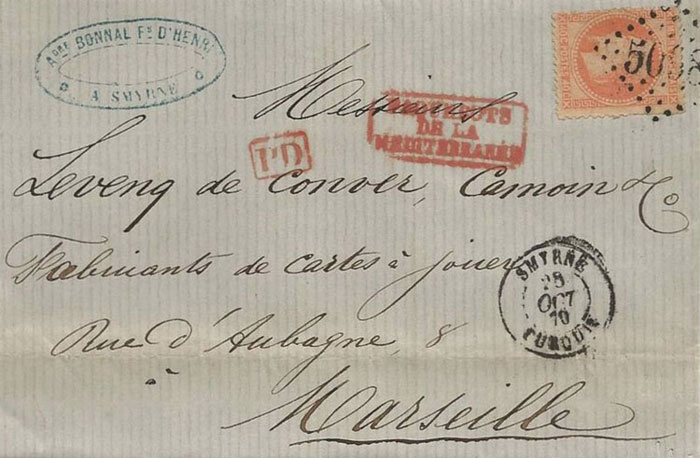 Adré BONNAL Fs D'HENRI
A SMYRNE
5098
Messieurs
PAQUEBOTS
DE LA
MÉDITERRANÉE
PD
Levenq de Conver, Camoin & Co
Fabricants de cartes à jouer
Rue d'Aubagne, 8
à
Marseille
SMYRNE
28
OCT
70
TURQUIE